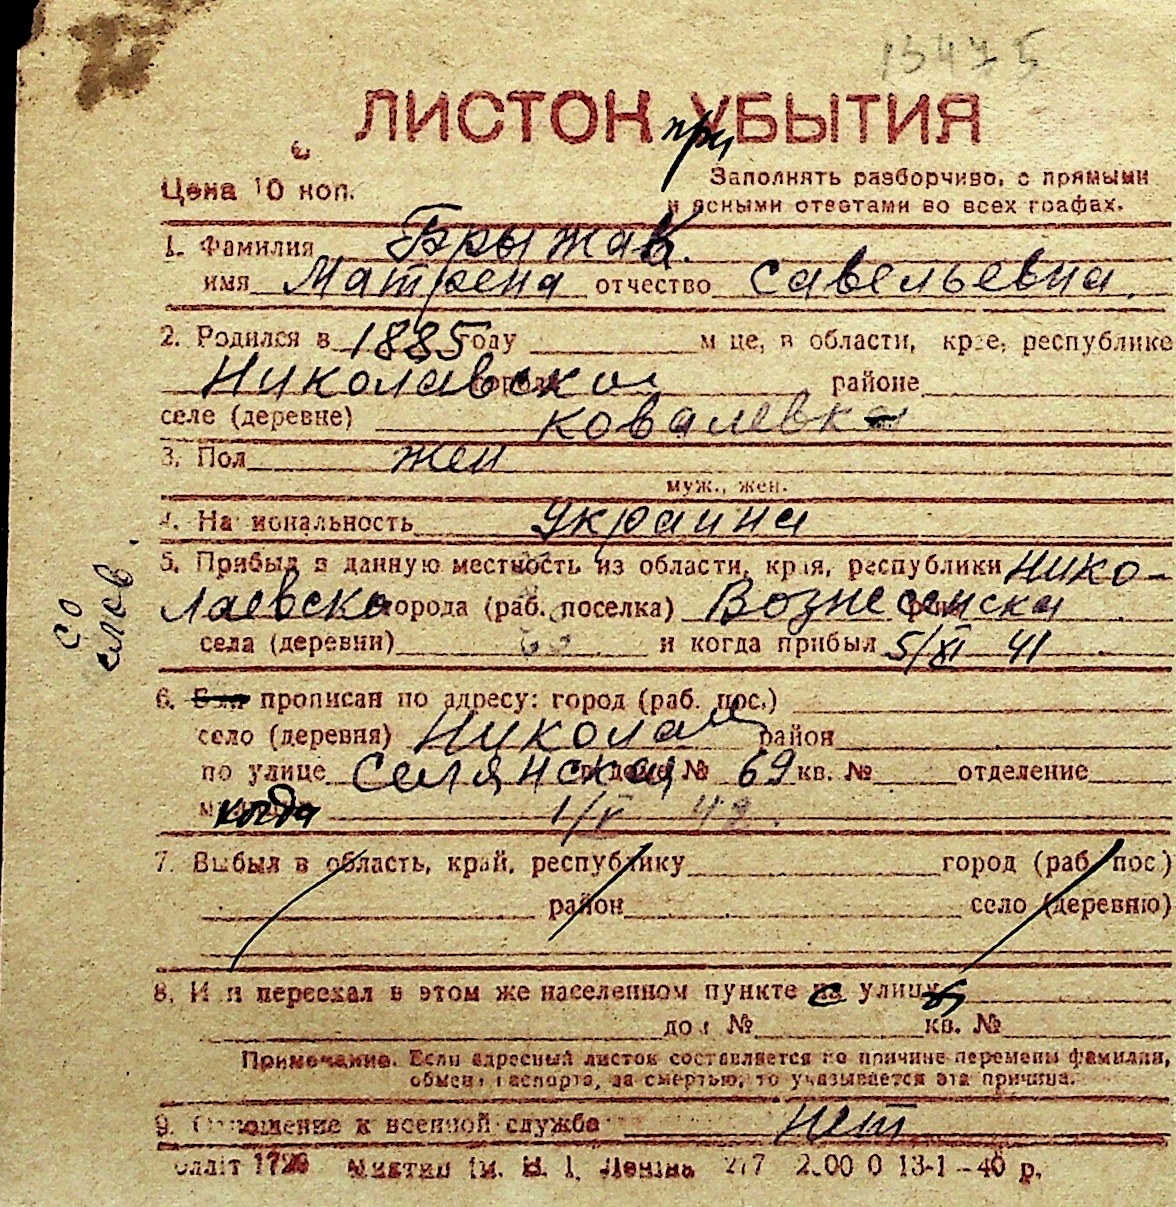 13475
ЛИСТОК УБЫТИЯ
при
Цена 10 коп.
Заполнять разборчиво, с прямыми
и ясными ответами во всех графах.
1. Фамилия Брыжак.
имя Матрена отчество Савельевна.
2. Родился в 1885 году м-це, в области, крае, республике
Николаевской районе
селе (деревне) Ковалевка
3. Пол жен
муж., жен.
4. Национальность Украина
5. Прибыл в данную местность из области, края, республики Нико-
лаевско города (раб. поселка) Вознесенска
села (деревни) и когда прибыл 5/XI 41
со
слов.
6. Был прописан по адресу: город (раб. пос.)
село (деревня) Николаев район
по улице Селянская № 69 кв. № отделение
когда 1/V 42.
7. Выбыл в область, край, республику город (раб. пос.)
район село (деревню)
8. Или переехал в этом же населенном пункте с улицы
дом № кв. №
Примечание. Если адресный листок составляется по причине перемены фамилии,
обмена паспорта, за смертью, то указывается эта причина.
9. Отношение к военной службе нет
1729 Ленiна 2.00 0 13-1-40 р.